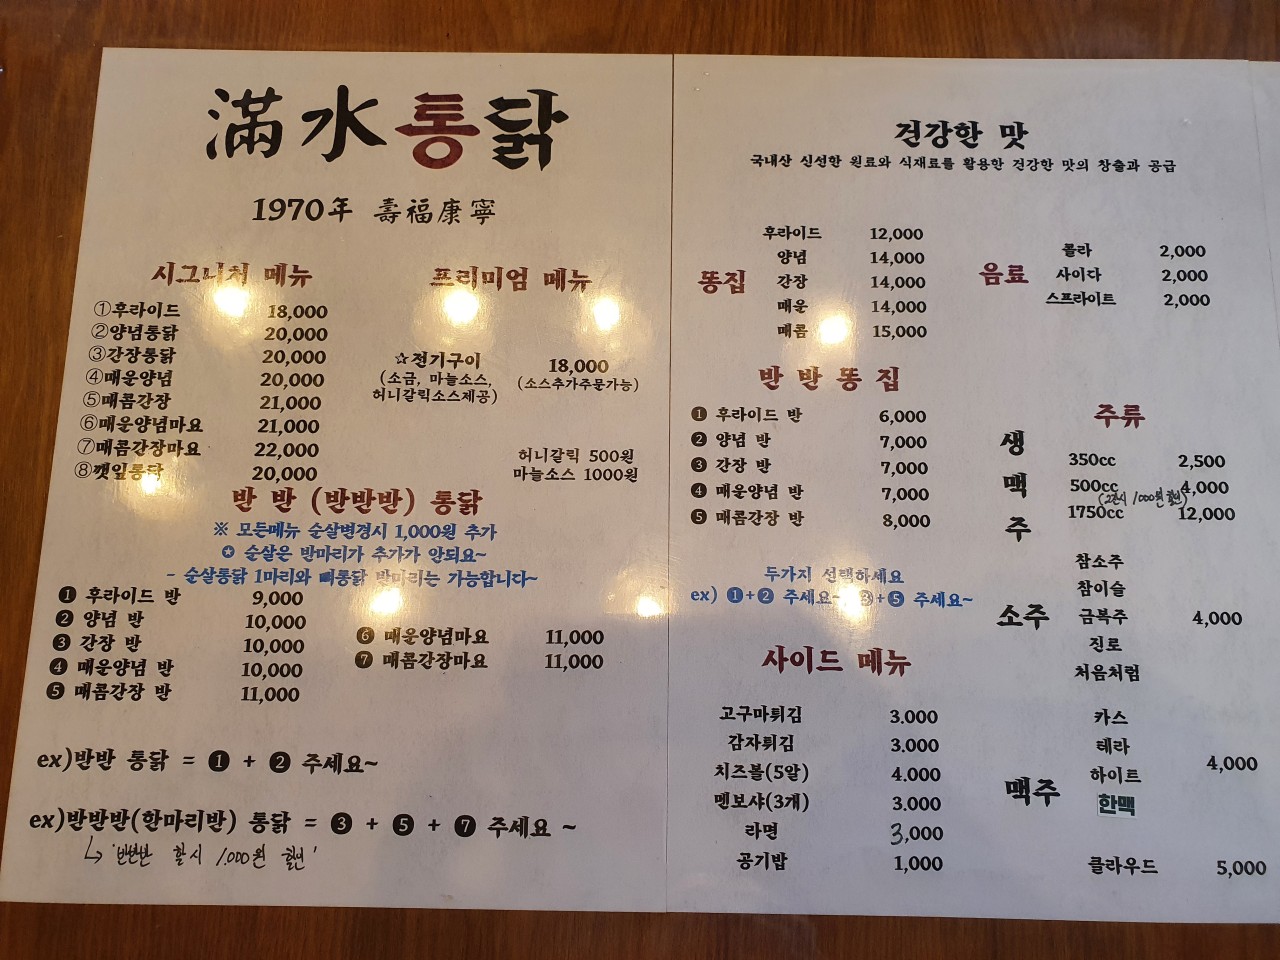 滿水통닭
1970年 壽福康寧
시그니처 메뉴
①후라이드 18,000
②양념통닭 20,000
③간장통닭 20,000
④매운양념 20,000
⑤매콤간장 21,000
⑥매운양념마요 21,000
⑦매콤간장마요 22,000
⑧깻잎통닭 20,000
프리미엄 메뉴
☆전기구이 18,000
(소금, 마늘소스, (소스추가주문가능)
허니갈릭소스제공)
허니갈릭 500원
마늘소스 1000원
반 반 (반반반) 통닭
※ 모든메뉴 순살변경시 1,000원 추가
✪ 순살은 반마리가 추가가 안되요~
- 순살통닭 1마리와 뼈통닭 반마리는 가능합니다~
❶ 후라이드 반 9,000
❷ 양념 반 10,000
❸ 간장 반 10,000
❹ 매운양념 반 10,000
❺ 매콤간장 반 11,000
❻ 매운양념마요 11,000
❼ 매콤간장마요 11,000
ex)반반 통닭 = ❶ + ❷ 주세요~
ex)반반반(한마리반) 통닭 = ❸ + ❺ + ❼ 주세요 ~
↳ '반반반 할시 1,000원 할인'
건강한 맛
국내산 신선한 원료와 식재료를 활용한 건강한 맛의 창출과 공급
똥집
후라이드 12,000
양념 14,000
간장 14,000
매운 14,000
매콤 15,000
음료
콜라 2,000
사이다 2,000
스프라이트 2,000
반 반 똥 집
❶ 후라이드 반 6,000
❷ 양념 반 7,000
❸ 간장 반 7,000
❹ 매운양념 반 7,000
❺ 매콤간장 반 8,000
두가지 선택하세요
ex) ❶+❷ 주세요~ ❸+❺ 주세요~
사이드 메뉴
고구마튀김 3.000
감자튀김 3.000
치즈볼(5알) 4.000
멘보샤(3개) 3.000
라면 3,000
공기밥 1,000
주류
생맥주
350cc 2,500
500cc 4,000
(2잔시 1,000원 할인)
1750cc 12,000
소주
참소주
참이슬
금복주 4,000
진로
처음처럼
맥주
카스
테라
4,000
하이트
한맥
클라우드 5,000